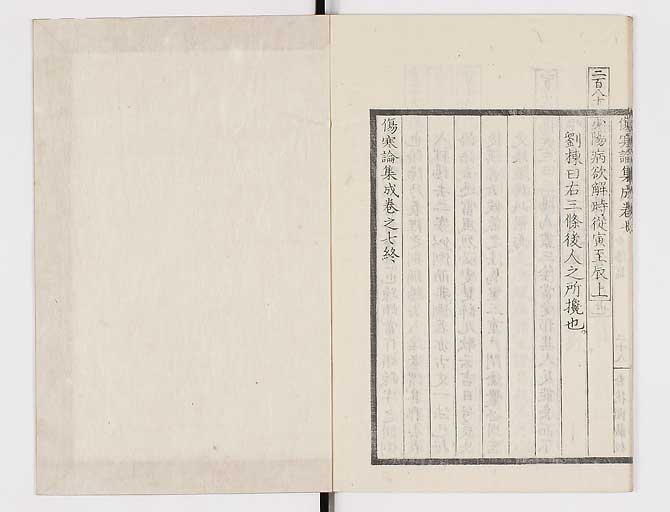 傷寒論集成卷七
二百八十 少陽病欲解時從寅至辰上
劉棟曰右三條後人之所攙也。
傷寒論集成卷之七終